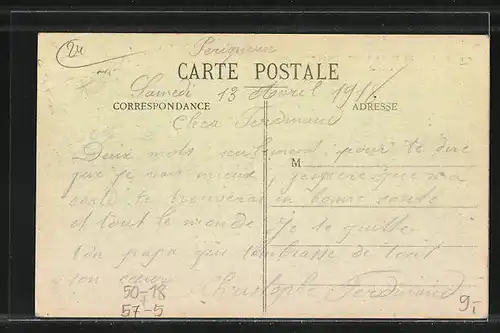 24
Perigueux
CARTE POSTALE
Samedi 13 Avril 191
CORRESPONDANCE ADRESSE
Cher Ferdinand
Deux mots seulement pour te dire
M
que je vais mieux, j'espere que ma
carte te trouvera en bonne sante
et tout le monde Je te quitte
ton papa qui t'embrasse de tout
son cœur Christophe Ferdinand
50-18
57-5
9,-